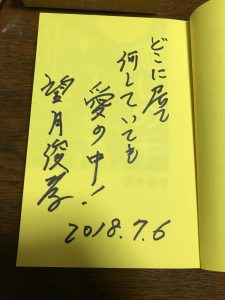 どこに居て
何していても
愛の中!
望月俊孝
2018.7.6